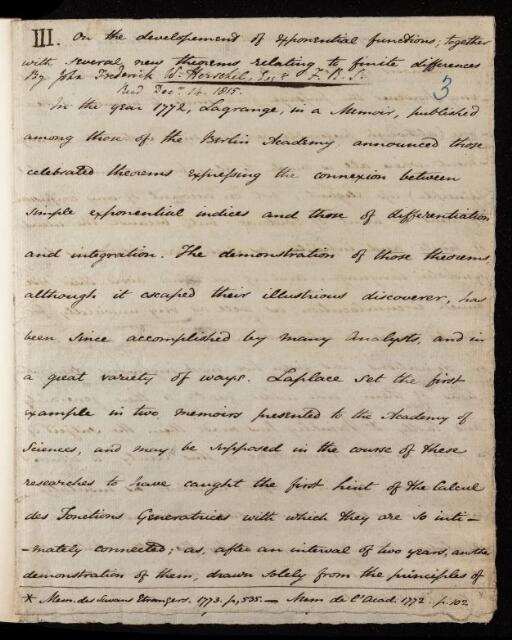 III. On the developement of exponential functions; together
with several new theorems relating to finite differences
By John Frederick W. Herschel, Esqr. F. R. S.
Read Decr. 14. 1815.
3
In the year 1772, Lagrange, in a Memoir, published
among those of the Berlin Academy, announced those
celebrated theorems expressing the connexion between
simple exponential indices and those of differentiation
and integration. The demonstration of those theorems,
although it escaped their illustrious discoverer, has
been since accomplished by many Analysts, and in
a great variety of ways. Laplace set the first
example in two memoirs presented to the Academy of
Sciences, and may be supposed in the course of these
researches to have caught the first hint of the Calcul
des Fonctions Generatrices with which they are so inti-
-mately connected; as, after an interval of two years, another
demonstration of them, drawn solely from the principles of
* Mem. des Savans Etrangers. 1773. p. 535. — Mem de l'Acad. 1772. p. 102